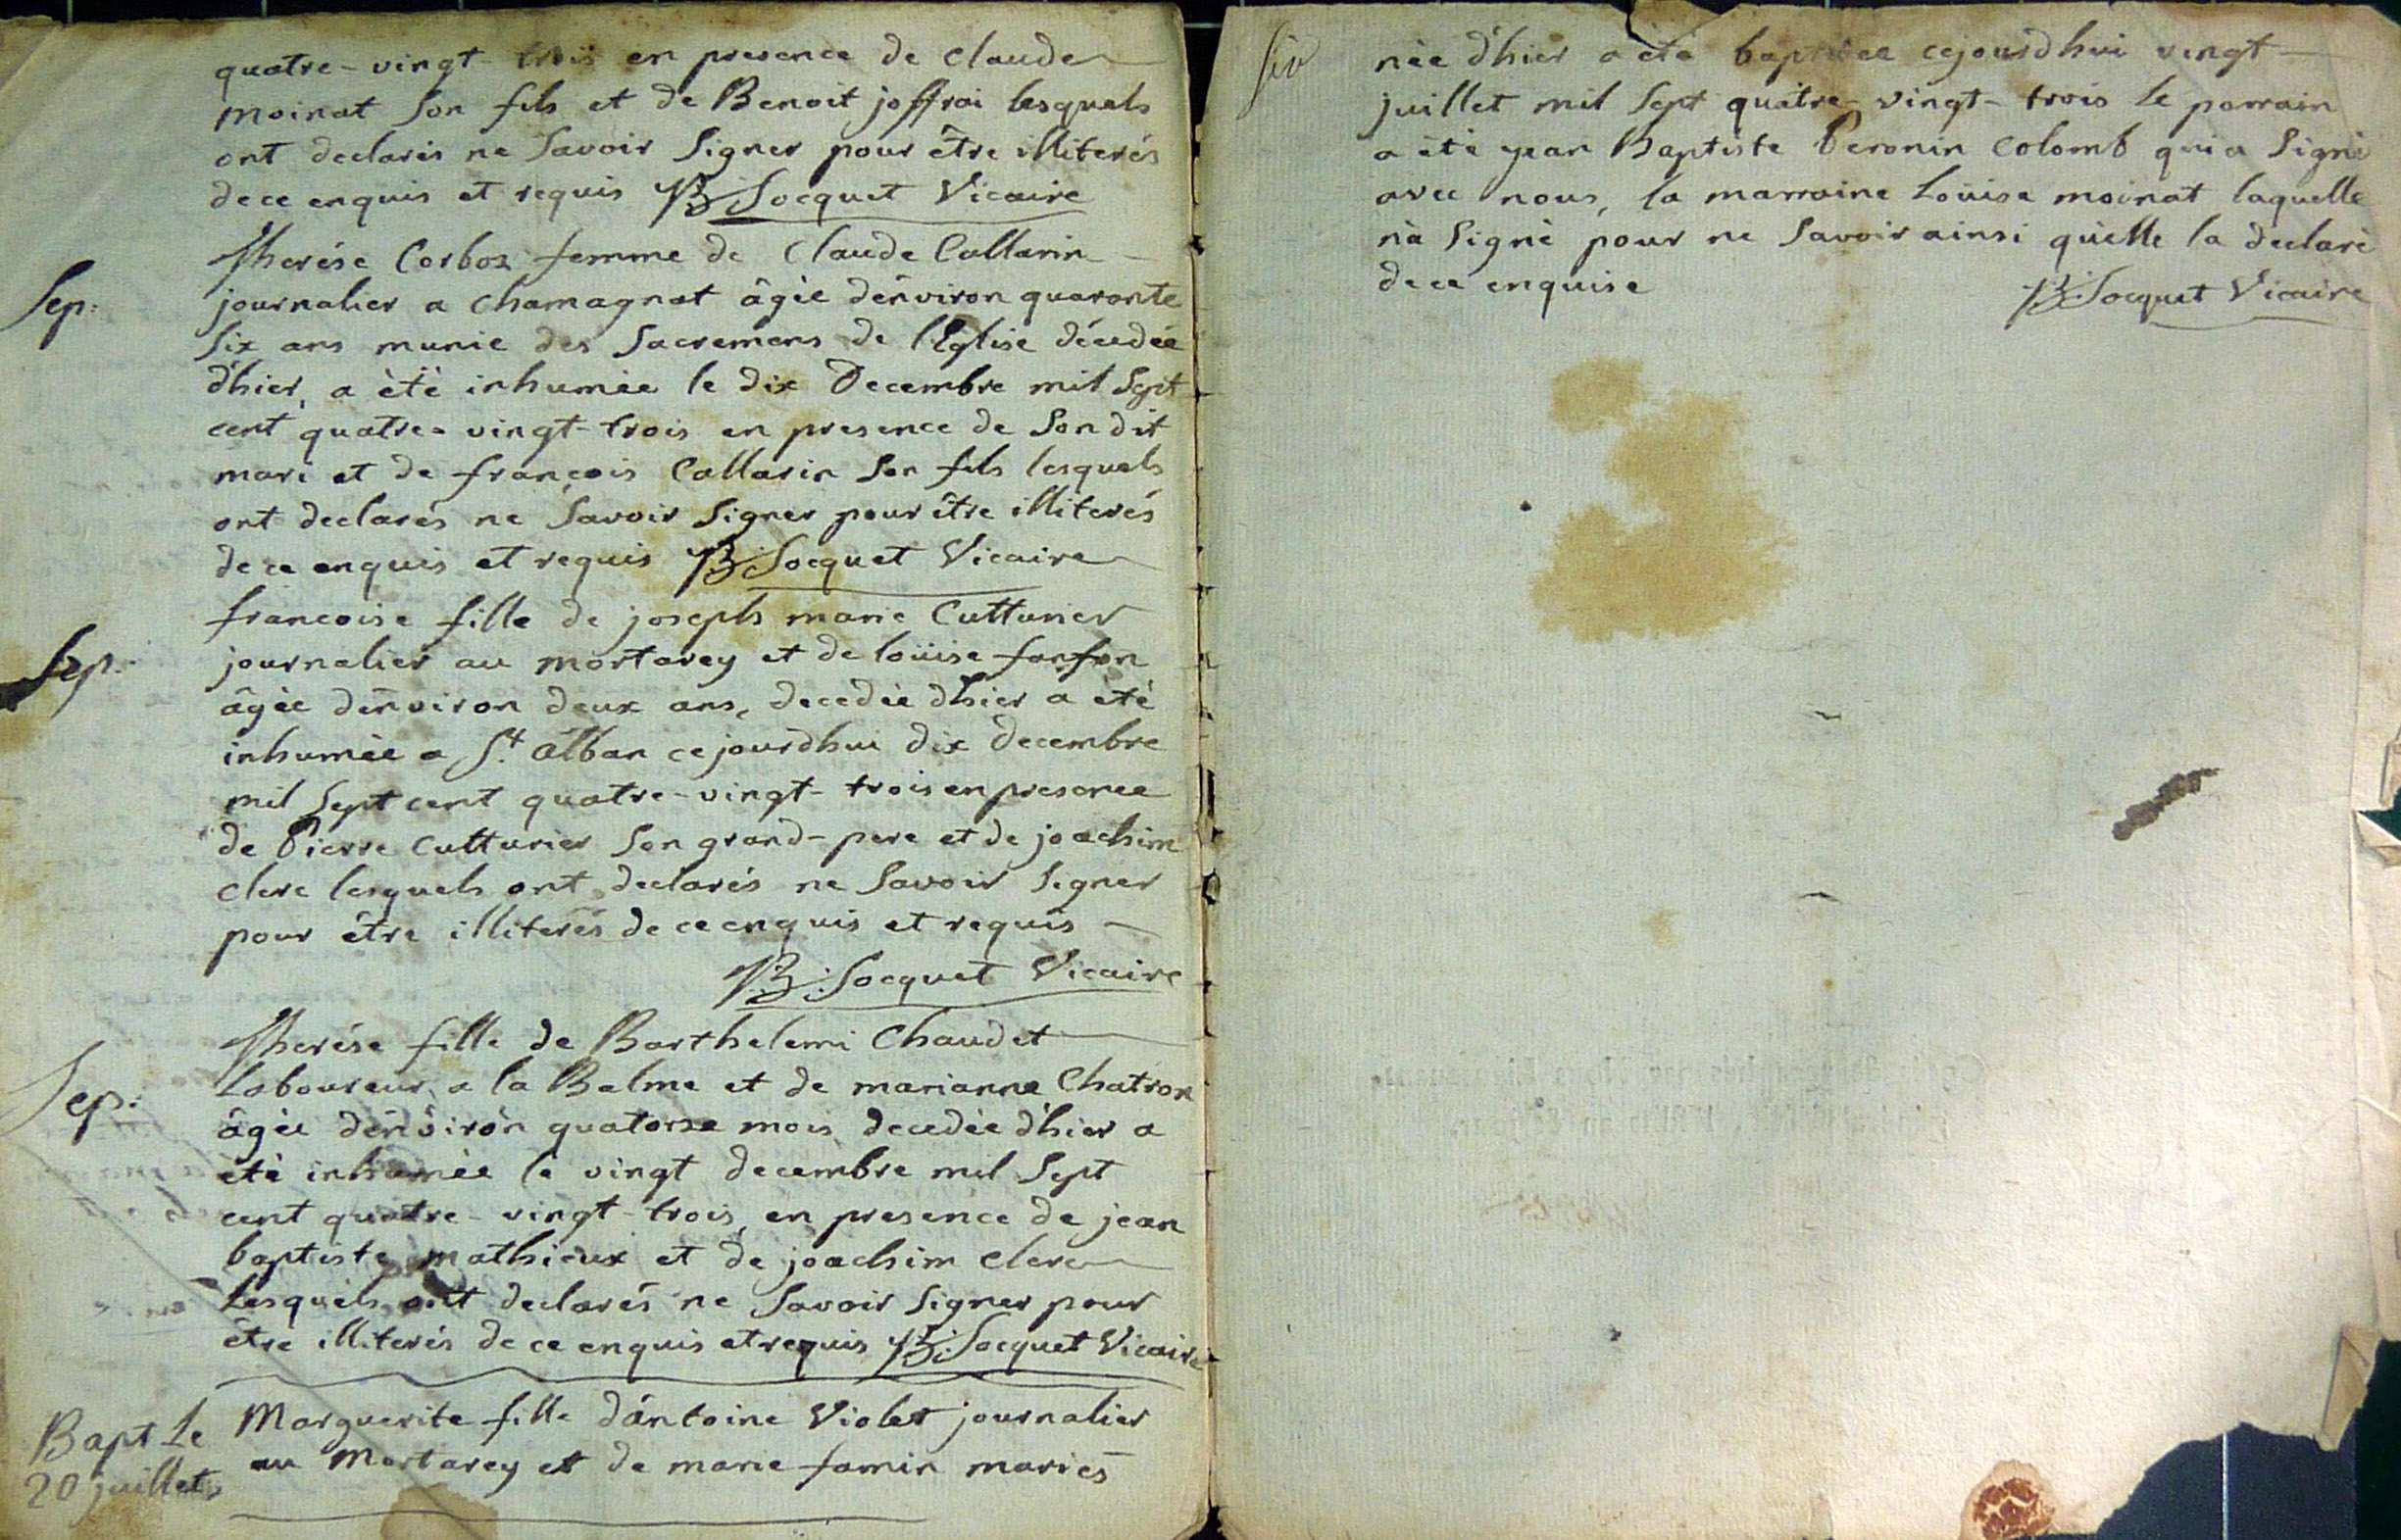 quatre-vingt-trois en presence de Claude
moinat son fils et de Benoit joffrai lesquels
ont declarés ne Savoir Signer pour être illiterés
de ce enquis et requis JB: Socquet Vicaire
Sep: Therése Corboz femme de Claude Callarin
journalier a Chamagnat âgée d'environ quarante
Six ans munie des Sacremens de l'Eglise décédée
d'hier, a èté inhumée le dix Decembre mil Sept
cent quatre-vingt-trois en presence de Son dit
mari et de françois Callarin Son fils lesquels
ont declarés ne Savoir Signer pour être illiterés
de ce enquis et requis JB: Socquet Vicaire
Sep: francoise fille de joseph marie Cutturier
journalier au mortarey et de loüise fonfon
âgée d'environ deux ans, decedée d'hier a èté
inhumée a St. alban cejourdhui dix decembre
mil Sept cent quatre-vingt-trois en presence
de Pierre Cutturier Son grand-pere et de joachim
clerc lesquels ont declarés ne Savoir Signer
pour être illiterés de ce enquis et requis
JB: Socquet Vicaire
Sep: Therése fille de Barthelemi Chaudet
Laboureur a la Balme et de marianne Chatron
âgée d'environ quatorze mois decedée d'hier a
èté inhumée le vingt decembre mil Sept
cent quatre-vingt-trois, en presence de jean
baptiste mathieux et de joachim Clerc
Lesquels ont declarés ne Savoir Signer pour
être illiterés de ce enquis et requis JB: Socquet Vicaire
Bapt Le
20 juillet
Marguerite fille d'antoine Violet journalier
au Mortarey et de marie famin mariés
née d'hier a èté baptisée cejourdhui vingt
juillet mil Sept quatre-vingt-trois Le parrain
a été jean Baptiste Peronin Colomb qui a Signé
avec nous, la marraine Loüise moinat laquelle
n'a Signé pour ne Savoir ainsi qu'elle la declaré
de ce enquise
JB: Socquet Vicaire